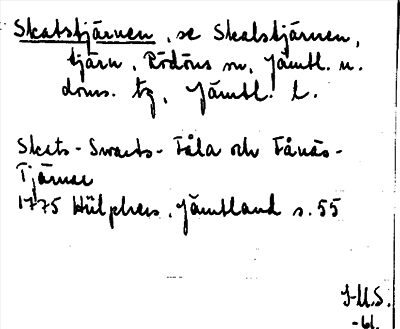 Skatstjärnen, se Skalstjärnen,
tjärn, Rödöns sn, Jämtl. n.
doms. tg, Jämtl. l.
Skats-Swarts-Fåla och Fånäs-
Tjärnar
1775 Hülphers, Jämtland s. 55
J-U.S.
-61.